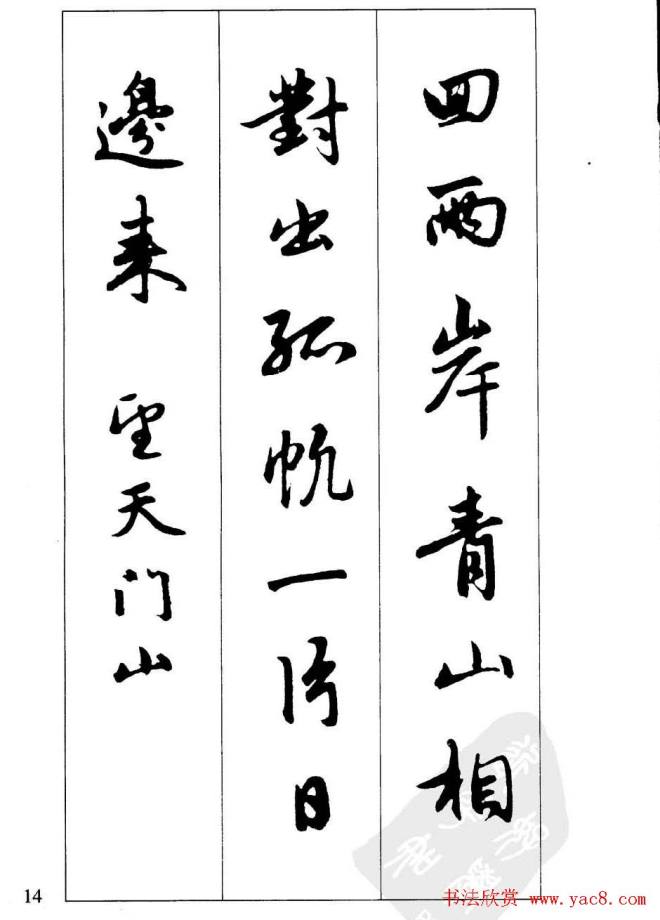 回兩岸青山相
對出孤帆一片日
邊來 望天门山
14
书法欣赏 www.yac8.com